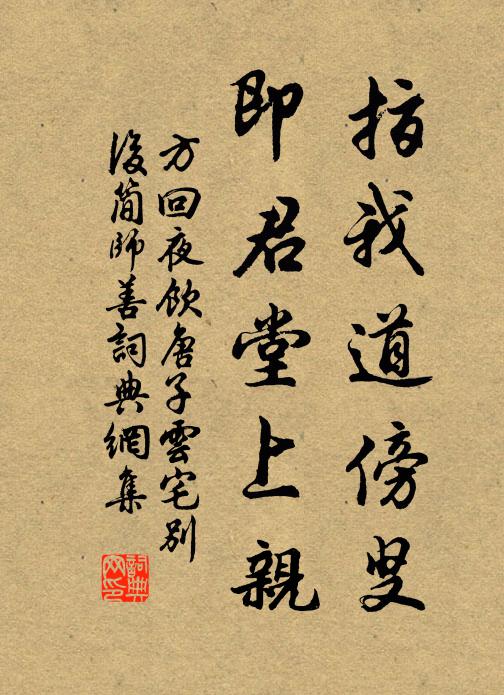 指我道傍叟
即君堂上親
方回夜飲唐子雲宅別
後簡師善詞典網集
詞典
网印